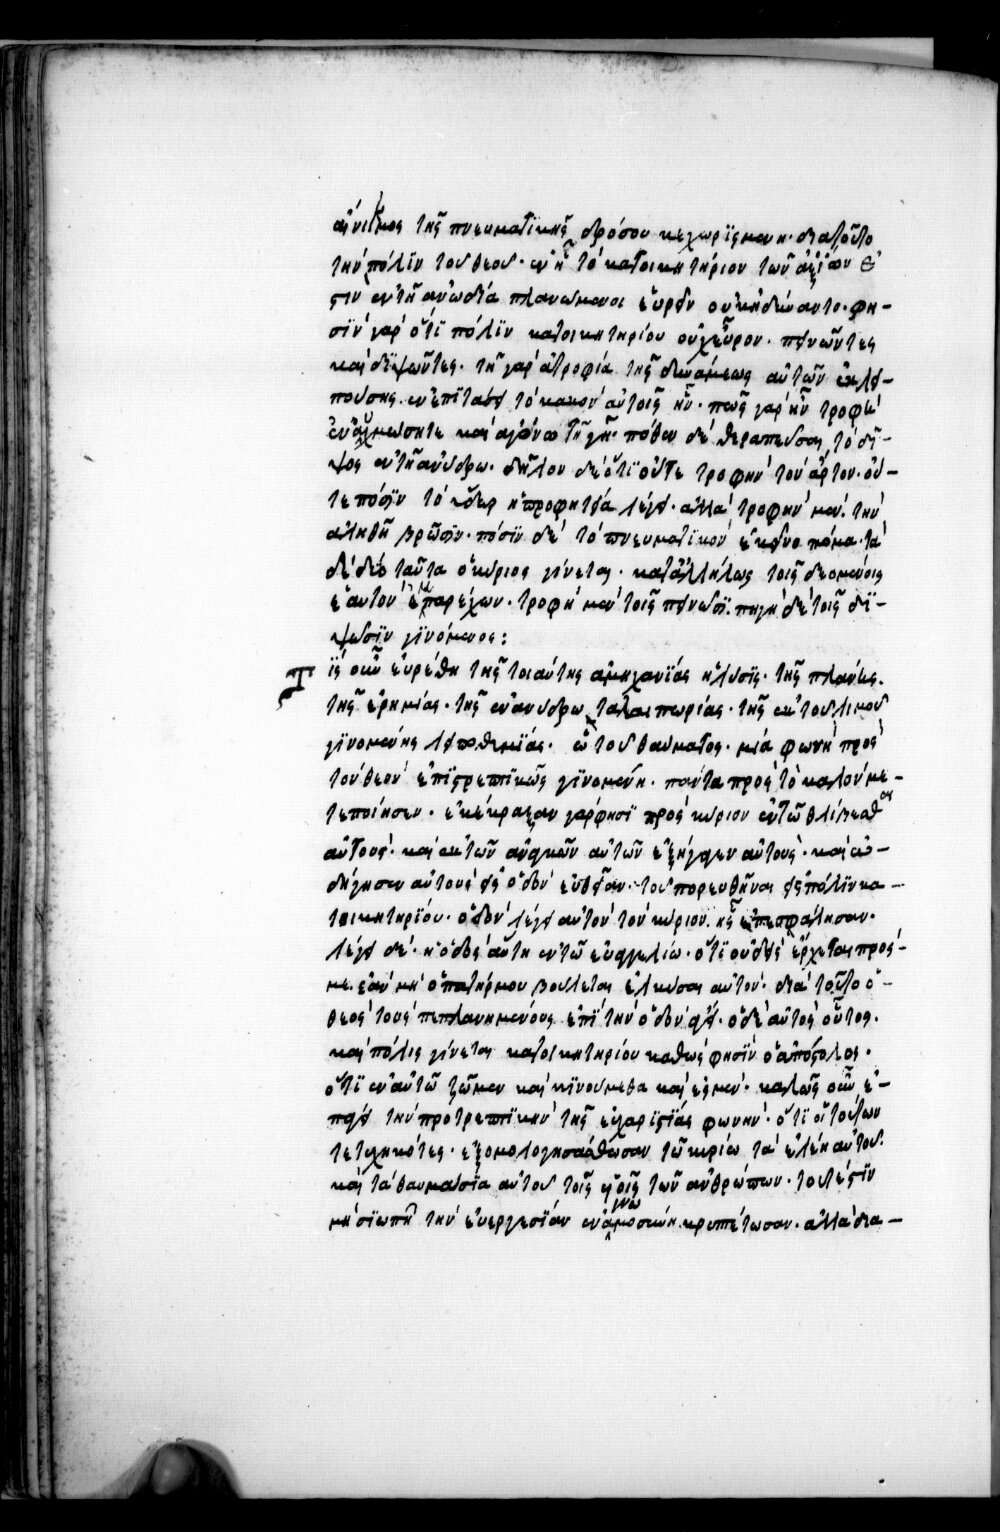 ἄνικμος τῆς πνευματικῆς δρόσου κεχωρισμένη· διατοῦτο
τὴν πόλϊν τοῦ θεοῦ· ἐν ᾗ τὸ κατοικητήριον τῶν ἀξίων ἐ
στιν ἐν τῇ ἀνωδία πλανώμενοι εὑρεῖν οὐκ ἠδύναντο· φη-
σὶν γὰρ ὅτϊ πόλϊν κατοικητηρίου οὐχ εὗρον· πεινῶντες
καὶ διψῶντες· τῇ γὰρ ἀτροφία τῆς δυνάμεως αὐτῶν ἐκλει-
πούσης ἐν ἐπϊτάσει τὸ κακὸν αὐτοῖς ἦν· πῶς γὰρ ἦν τροφὴ
ἐν αὐχμώσητε καὶ ἀγόνω τῇ γῇ· πόθεν δὲ θεραπεῦσαι τὸ δί-
ψος ἐν τῇ ἀνύδρω· δῆλον δὲ ὅτϊ οὔτε τροφὴν τὸν ἄρτον· οὔ-
τε πόσϊν τὸ ὕδωρ ἡ προφητεία λέγει· ἀλλὰ τροφὴν μὲν τὴν
ἀληθῆ βρῶσϊν· πόσϊν δὲ τὸ πνευματϊκὸν ἐκεῖνο πόμα· τὰ
δὲ δύο ταῦτα ὁ κύριος γίνεται· καταλλήλως τοῖς δεομένοις
ἑαυτὸν παρέχων· τροφὴ μὲν τοῖς πεινῶσϊ· πηγὴ δὲ τοῖς δϊ-
ψῶσϊν γϊνόμενος:
Τίς οὖν εὑρέθη τῆς τοιαύτης ἀμηχανΐας ἡ λύσϊς· τῆς πλάνης·
τῆς ἐρημίας· τῆς ἐν ἀνύδρω ταλαιπωρίας· τῆς ἐκ τοῦ λιμοῦ
γϊνομένης λειποθυμΐας· ὢ τοῦ θαύματος· μία φωνὴ πρὸς
τὸν θεὸν ἐπϊστρεπτϊκῶς γϊνομένη· πάντα πρὸς τὸ καλὸν με-
τεποίησεν· ἐκέκραξαν γάρ φησϊ πρὸς κύριον ἐν τῶ θλίβεσθαι
αὐτοὺς· καὶ ἐκ τῶν ἀναγκῶν αὐτῶν ἐξήγαγεν αὐτοὺς· καὶ ὡ-
δήγησεν αὐτοὺς εἰς ὁδὸν εὐθεῖαν· τοῦ πορευθῆναι εἰς πόλϊν κα-
τοικητηρΐου· ὁδὸν λέγει αὐτὸν τὸν κύριον· ἧς ἐπεσφάλησαν·
λέγει δὲ· ἡ ὁδὸς αὕτη ἐν τῶ εὐαγγελίω· ὅτϊ οὐδεὶς ἔρχεται πρός
με· ἐὰν μὴ ὁ πατήρ μου βούλεται ἑλκύσαι αὐτόν· διὰ τοῦτο ὁ-
θεὸς τοὺς πεπλανημένους ἐπϊ τὴν ὁδὸν ἄγει· ὁ δὲ αὐτὸς οὗτος·
καὶ πόλις γίνεται κατοικητηρίου καθώς φησϊν ὁ ἀπόστολος·
ὅτϊ ἐν αὐτῶ ζῶμεν καὶ κϊνούμεθα καὶ ἐσμὲν· καλῶς οὖν ἐ-
πάγει τὴν προτρεπτϊκὴν τῆς εὐχαρϊστΐας φωνὴν· ὅτϊ οἱ τούτων
τετυχηκότες· ἐξομολογησάσθωσαν τῶ κυρίω τὰ ἐλέη αὐτοῦ·
καὶ τὰ θαυμάσϊα αὐτοῦ τοῖς υἱοῖς τῶν ἀνθρώπων· τουτέστϊν
μὴ σϊωπῇ τὴν εὐεργεσΐαν ἐν ἀγνωμοσύνη κρυπτέτωσαν· ἀλλὰ δια-